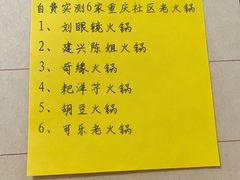 自费实测6家重庆社区老火锅
1、刘眼镜火锅
2、建兴陈姐火锅
3、奇缘火锅
4、耙洋芋火锅
5、胡豆火锅
6、可乐老火锅